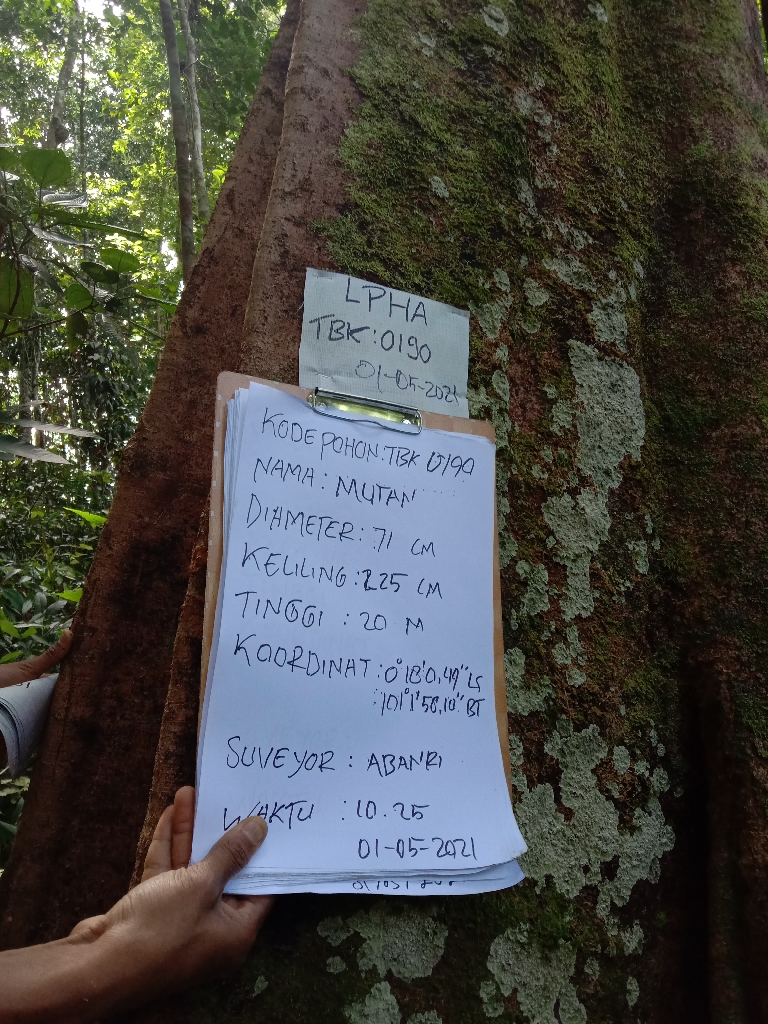 LPHA
TBK:0190
01-05-2021
KODE POHON:TBK 0190
NAMA: MUTAN
DIAMETER: 71 CM
KELILING: 225 CM
TINGGI : 20 M
KOORDINAT : 0° 18' 0,49" LS
: 101° 1' 58,10" BT
SUVEYOR : ABANRI
WAKTU : 10.25
01-05-2021